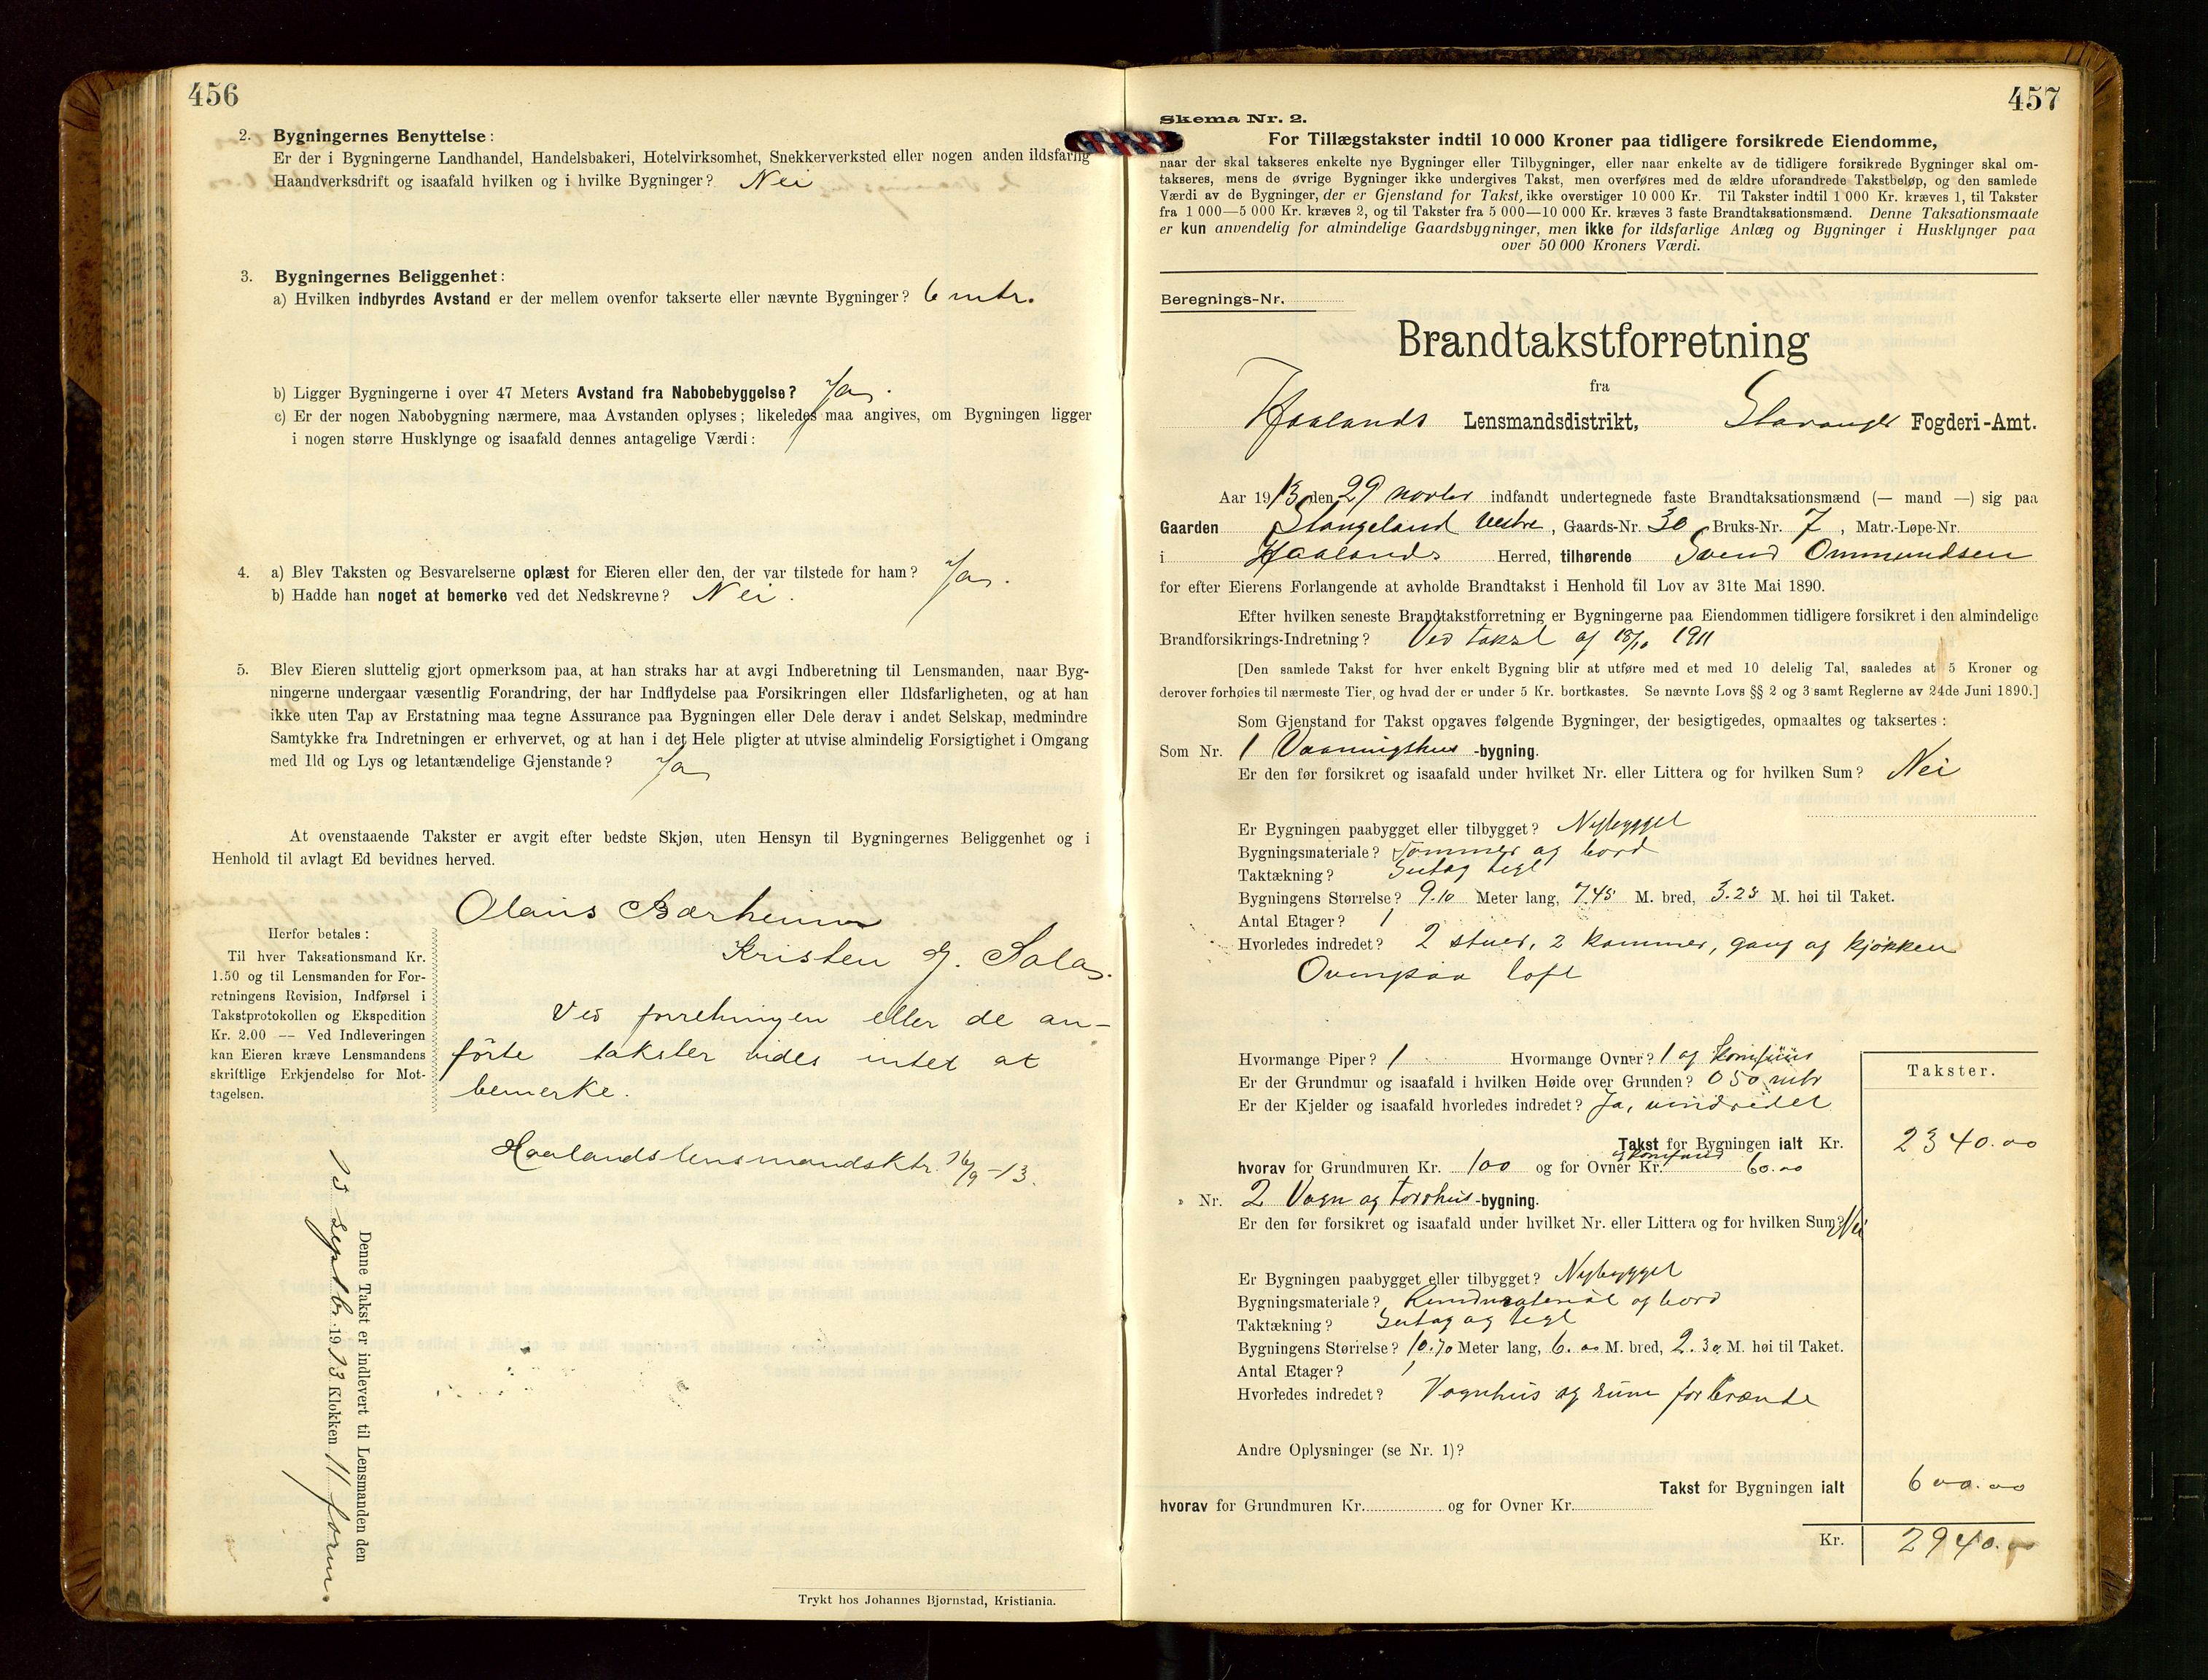 456
2. Bygningernes Benyttelse:
Er der i Bygningerne Landhandel, Handelsbakeri, Hotelvirksomhet, Snekkerverksted eller nogen anden ildsfarlig
Haandverksdrift og isaafald hvilken og i hvilke Bygninger? Nei
3. Bygningernes Beliggenhet:
a) Hvilken indbyrdes Avstand er der mellem ovenfor takserte eller nævnte Bygninger? 6 mtr.
b) Ligger Bygningerne i over 47 Meters Avstand fra Nabobebyggelse? Ja.
c) Er der nogen Nabobygning nærmere, maa Avstanden oplyses; likeledes maa angives, om Bygningen ligger
i nogen større Husklynge og isaafald dennes antagelige Værdi:
4. a) Blev Taksten og Besvarelserne oplæst for Eieren eller den, der var tilstede for ham? Ja.
b) Hadde han noget at bemerke ved det Nedskrevne? Nei.
5. Blev Eieren sluttelig gjort opmerksom paa, at han straks har at avgi Indberetning til Lensmanden, naar Byg-
ningerne undergaar væsentlig Forandring, der har Indflydelse paa Forsikringen eller Ildsfarligheten, og at han
ikke uten Tap av Erstatning maa tegne Assurance paa Bygningen eller Dele derav i andet Selskap, medmindre
Samtykke fra Indretningen er erhvervet, og at han i det Hele pligter at utvise almindelig Forsigtighet i Omgang
med Ild og Lys og letantændelige Gjenstande? Ja
At ovenstaaende Takster er avgit efter bedste Skjøn, uten Hensyn til Bygningernes Beliggenhet og i
Henhold til avlagt Ed bevidnes herved.
Olaus Bærheim
Kristen G. Sola.
Herfor betales:
Til hver Taksationsmand Kr.
1.50 og til Lensmanden for For-
retningens Revision, Indførsel i
Takstprotokollen og Ekspedition
Kr. 2.00 — Ved Indleveringen
kan Eieren kræve Lensmandens
skriftlige Erkjendelse for Mot-
tagelsen.
Ved forretningen eller de an-
förte takster vides intet at
bemerke.
Haalands lensmandsktr. 16/9-13.
Denne Takst er indlevert til Lensmanden den
septbr. 1913 Klokken 11 form.
Trykt hos Johannes Bjørnstad, Kristiania.
457
Skema Nr. 2.
For Tillægstakster indtil 10 000 Kroner paa tidligere forsikrede Eiendomme,
naar der skal takseres enkelte nye Bygninger eller Tilbygninger, eller naar enkelte av de tidligere forsikrede Bygninger skal om-
takseres, mens de øvrige Bygninger ikke undergives Takst, men overføres med de ældre uforandrede Takstbeløp, og den samlede
Værdi av de Bygninger, der er Gjenstand for Takst, ikke overstiger 10 000 Kr. Til Takster indtil 1 000 Kr. kræves 1, til Takster
fra 1 000—5 000 Kr. kræves 2, og til Takster fra 5 000—10 000 Kr. kræves 3 faste Brandtaksationsmænd. Denne Taksationsmaate
er kun anvendelig for almindelige Gaardsbygninger, men ikke for ildsfarlige Anlæg og Bygninger i Husklynger paa
over 50 000 Kroners Værdi.
Beregnings-Nr.
Brandtakstforretning
fra
Haalands Lensmandsdistrikt, Stavanger Fogderi-Amt.
Aar 1913 den 29 novbr indfandt undertegnede faste Brandtaksationsmænd (— mand —) sig paa
Gaarden Stangeland vestre, Gaards-Nr. 30 Bruks-Nr. 7, Matr.-Løpe-Nr.
i Haalands Herred, tilhørende Svend Ommundsen
for efter Eierens Forlangende at avholde Brandtakst i Henhold til Lov av 31te Mai 1890.
Efter hvilken seneste Brandtakstforretning er Bygningerne paa Eiendommen tidligere forsikret i den almindelige
Brandforsikrings-Indretning? Ved takst af 18/10 1911
[Den samlede Takst for hver enkelt Bygning blir at utføre med et med 10 delelig Tal, saaledes at 5 Kroner og
derover forhøies til nærmeste Tier, og hvad der er under 5 Kr. bortkastes. Se nævnte Lovs §§ 2 og 3 samt Reglerne av 24de Juni 1890.]
Som Gjenstand for Takst opgaves følgende Bygninger, der besigtigedes, opmaaltes og taksertes:
Som Nr. 1 Vaaningshus -bygning.
Er den før forsikret og isaafald under hvilket Nr. eller Littera og for hvilken Sum? Nei
Er Bygningen paabygget eller tilbygget? Nybygget
Bygningsmateriale? Tömmer og bord
Taktækning? Sutag tegl
Bygningens Størrelse? 9.10 Meter lang, 7.45 M. bred, 3.25 M. høi til Taket.
Antal Etager? 1
Hvorledes indredet? 2 stuer, 2 kammer, gang og kjøkken
Ovenpaa loft
Hvormange Piper? 1 Hvormange Ovner? 1 og komfüir
Er der Grundmur og isaafald i hvilken Høide over Grunden? 0 50 mtr
Er der Kjelder og isaafald hvorledes indredet? Ja, uindredet
Takster.
Takst for Bygningen ialt Kr. 2340.00
hvorav for Grundmuren Kr. 100 og for Ovner og komfuir Kr. 60.00
» Nr. 2 Vogn og torvhus -bygning.
Er den før forsikret og isaafald under hvilket Nr. eller Littera og for hvilken Sum? Nei
Er Bygningen paabygget eller tilbygget? Nybygget
Bygningsmateriale? Rundmaterial og bord
Taktækning? Sutag og tegl
Bygningens Størrelse? 10.70 Meter lang, 6.00 M. bred, 2.30 M. høi til Taket.
Antal Etager? 1
Hvorledes indredet? Vognhus og rum for brænde
Andre Oplysninger (se Nr. 1)?
Takst for Bygningen ialt 600.00
hvorav for Grundmuren Kr. og for Ovner Kr.
Kr. 2940.00